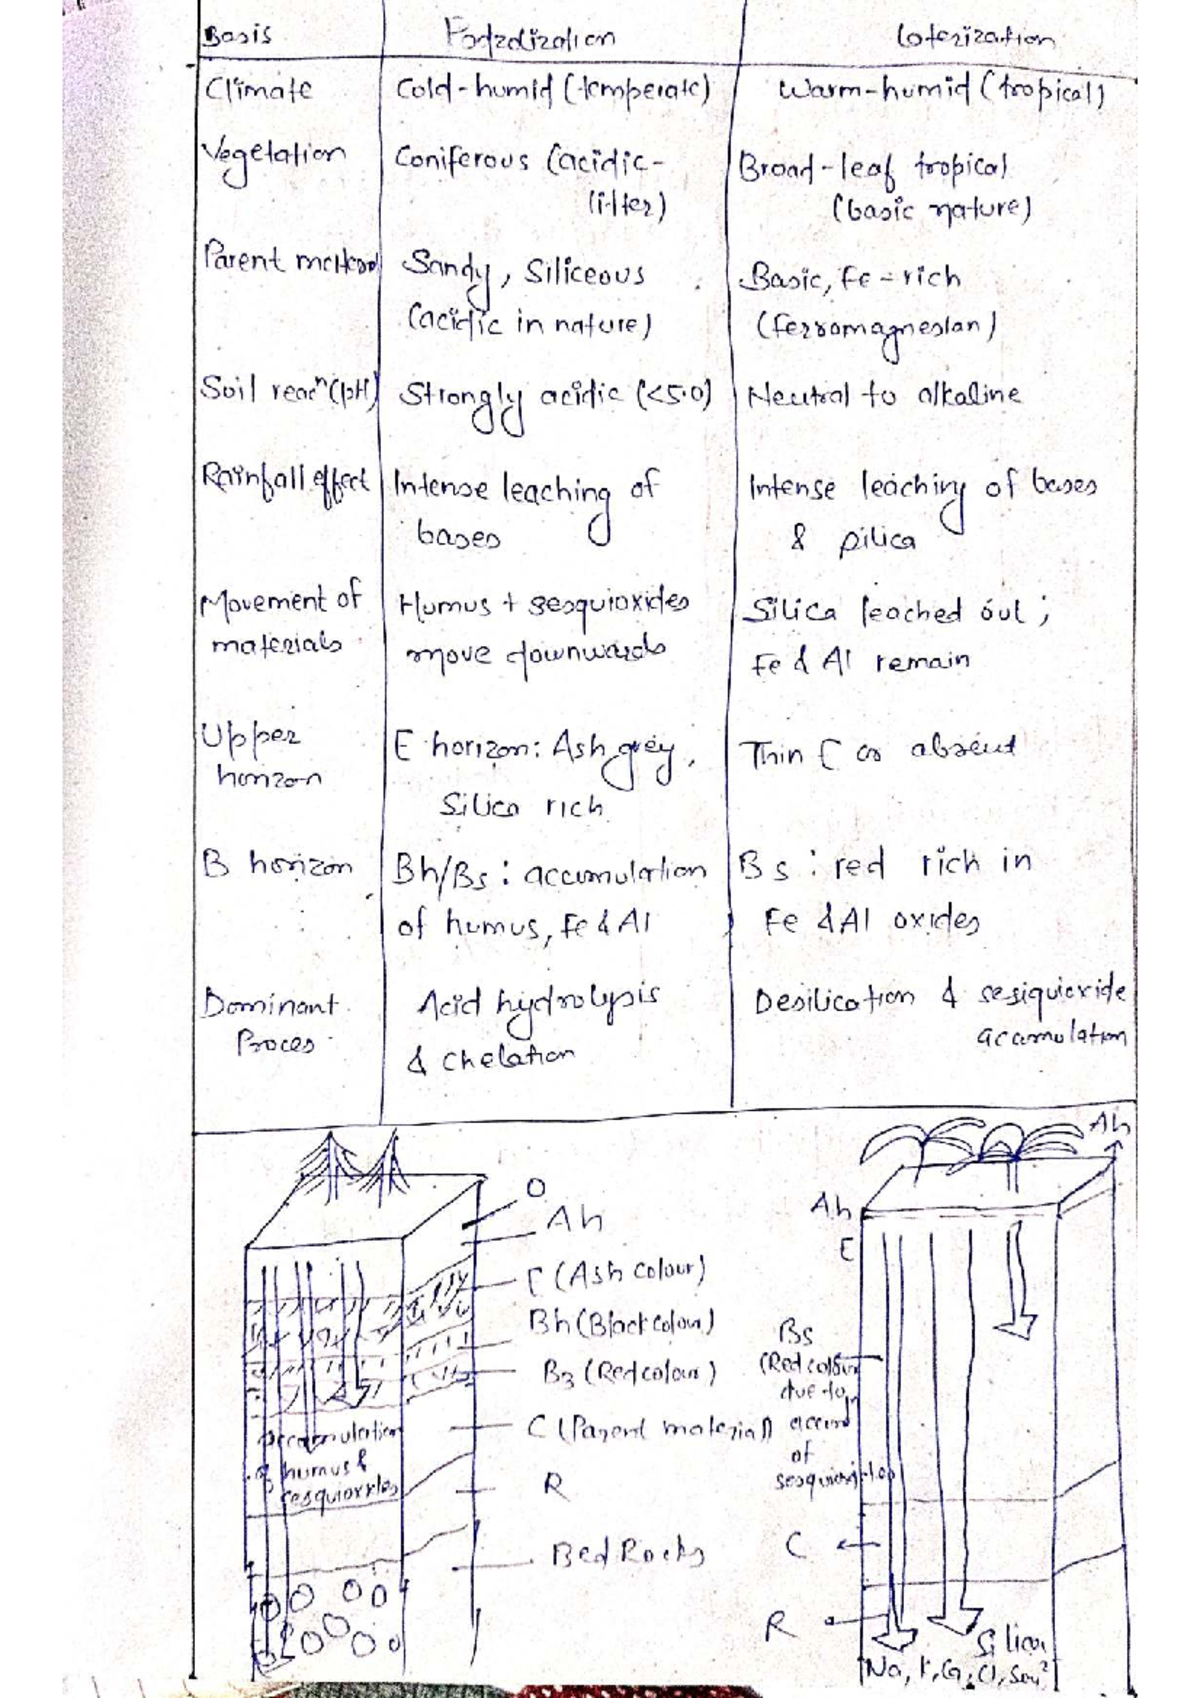 Basis Podzolization Laterization
Climate Cold-humid (temperate) Warm-humid (tropical)
Vegetation Coniferous (acidic- Broad-leaf tropical
litter) (basic nature)
Parent material Sandy, Siliceous Basic, Fe-rich
(acidic in nature) (ferromagnesian)
Soil reacⁿ(pH) Strongly acidic (<5.0) Neutral to alkaline
Rainfall effect Intense leaching of Intense leaching of bases
bases & silica
Movement of Humus + sesquioxides Silica leached out;
materials move downwards Fe & Al remain
Upper E horizon: Ash grey, Thin E or absent
horizon Silica rich
B horizon Bh/Bs: accumulation Bs: red rich in
of humus, Fe & Al Fe & Al oxides
Dominant Acid hydrolysis Desilication & sesiquioxide
Proces & chelation acamulation
O
Ah
E (Ash colour)
Bh (Black colour)
B3 (Red colour)
C (Parent material)
R
Bed Rocks
accamulation
of humus &
sesquioxides
Ah
Ah
E
Bs
(Red colour
due to
accum
of
C
R
Silica
Na, K, Ca, Cl,